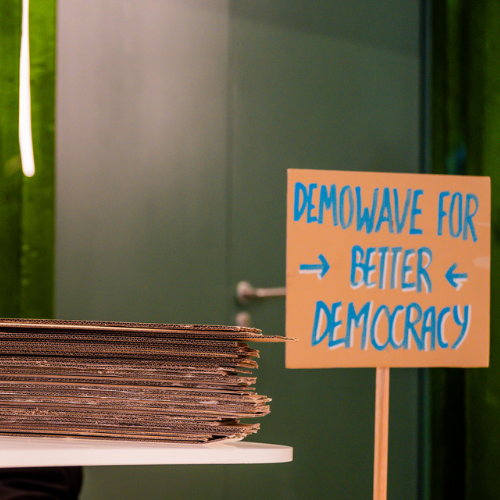 DEMOWAVE FOR
→ BETTER ←
DEMOCRACY